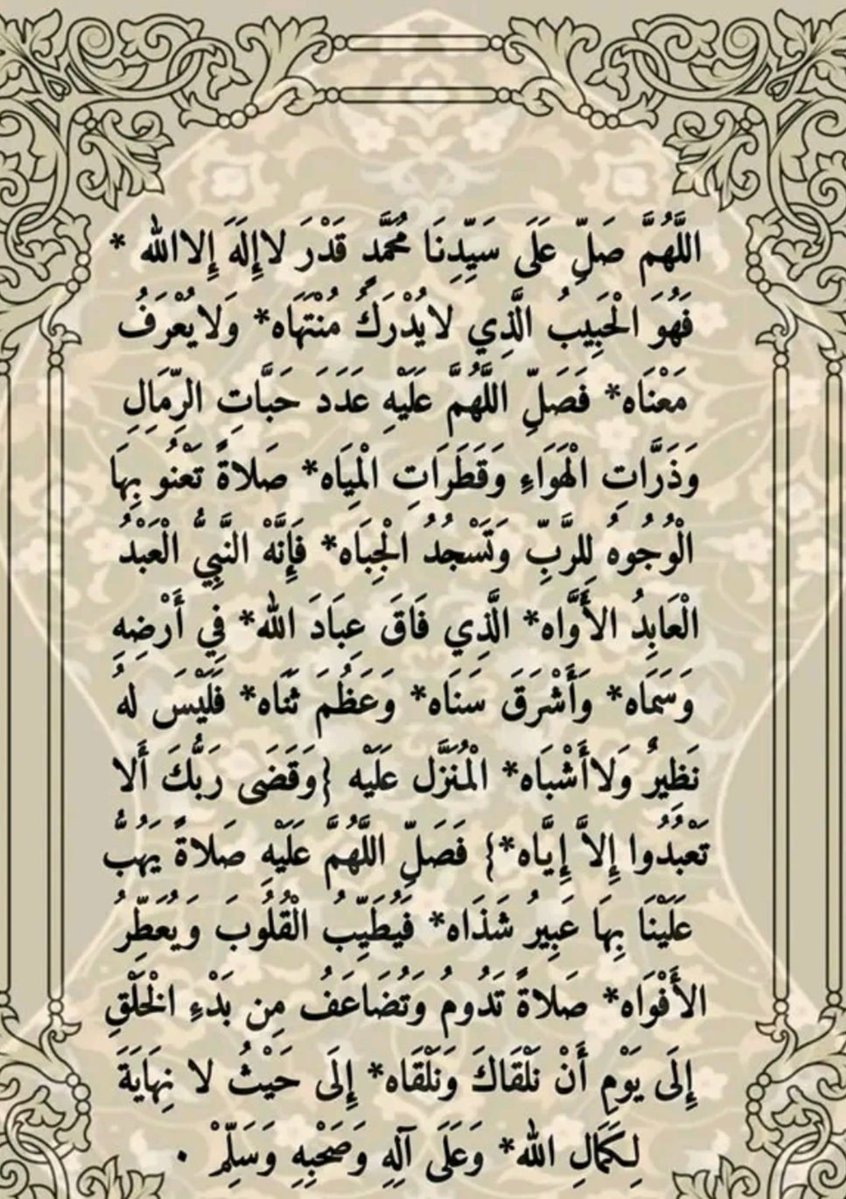 اللَّهُمَّ صَلِّ عَلَى سَيِّدِنَا مُحَمَّدٍ قَدْرَ لاإِلَهَ إِلاالله *
فَهُوَ الْحَبِيبُ الَّذِي لايُدْرَكُ مُنْتَهَاه* وَلايُعْرَفُ
مَعْنَاه* فَصَلِّ اللَّهُمَّ عَلَيْهِ عَدَدَ حَبَّاتِ الرِّمَالِ
وَذَرَّاتِ الْهَوَاءِ وَقَطَرَاتِ الْمِيَاه* صَلاةً تَعْنُو بِهَا
الْوُجُوهُ لِلرَّبِّ وَتَسْجُدُ الْجِبَاه* فَإِنَّهْ النَّبِيُّ الْعَبْدُ
الْعَابِدُ الأَوَّاه* الَّذِي فَاقَ عِبَادَ الله* فِي أَرْضِهِ
وَسَمَاه* وَأَشْرَقَ سَنَاه* وَعَظُمَ ثَنَاه* فَلَيْسَ لهُ
نَظِيرٌ وَلاأَشْبَاه* الْمُنَزَّل عَلَيْه {وَقَضَى رَبُّكَ أَلا
تَعْبُدُوا إِلاَّ إِيَّاه*} فَصَلِّ اللَّهُمَّ عَلَيْهِ صَلاةً يَهُبُّ
عَلَيْنَا بِهَا عَبِيرُ شَذَاه* فَيُطَيِّبُ الْقُلُوبَ وَيُعَطِّرُ
الأَفْوَاه* صَلاةً تَدُومُ وَتُضَاعَفُ مِن بَدْءِ الْخَلْقِ
إِلَى يَوْمِ أَنْ نَلْقَاكَ وَنَلْقَاه* إِلَى حَيْثُ لا نِهَايَةَ
لِكَمَالِ الله* وَعَلَى آلِهِ وَصَحْبِهِ وَسَلِّمْ .